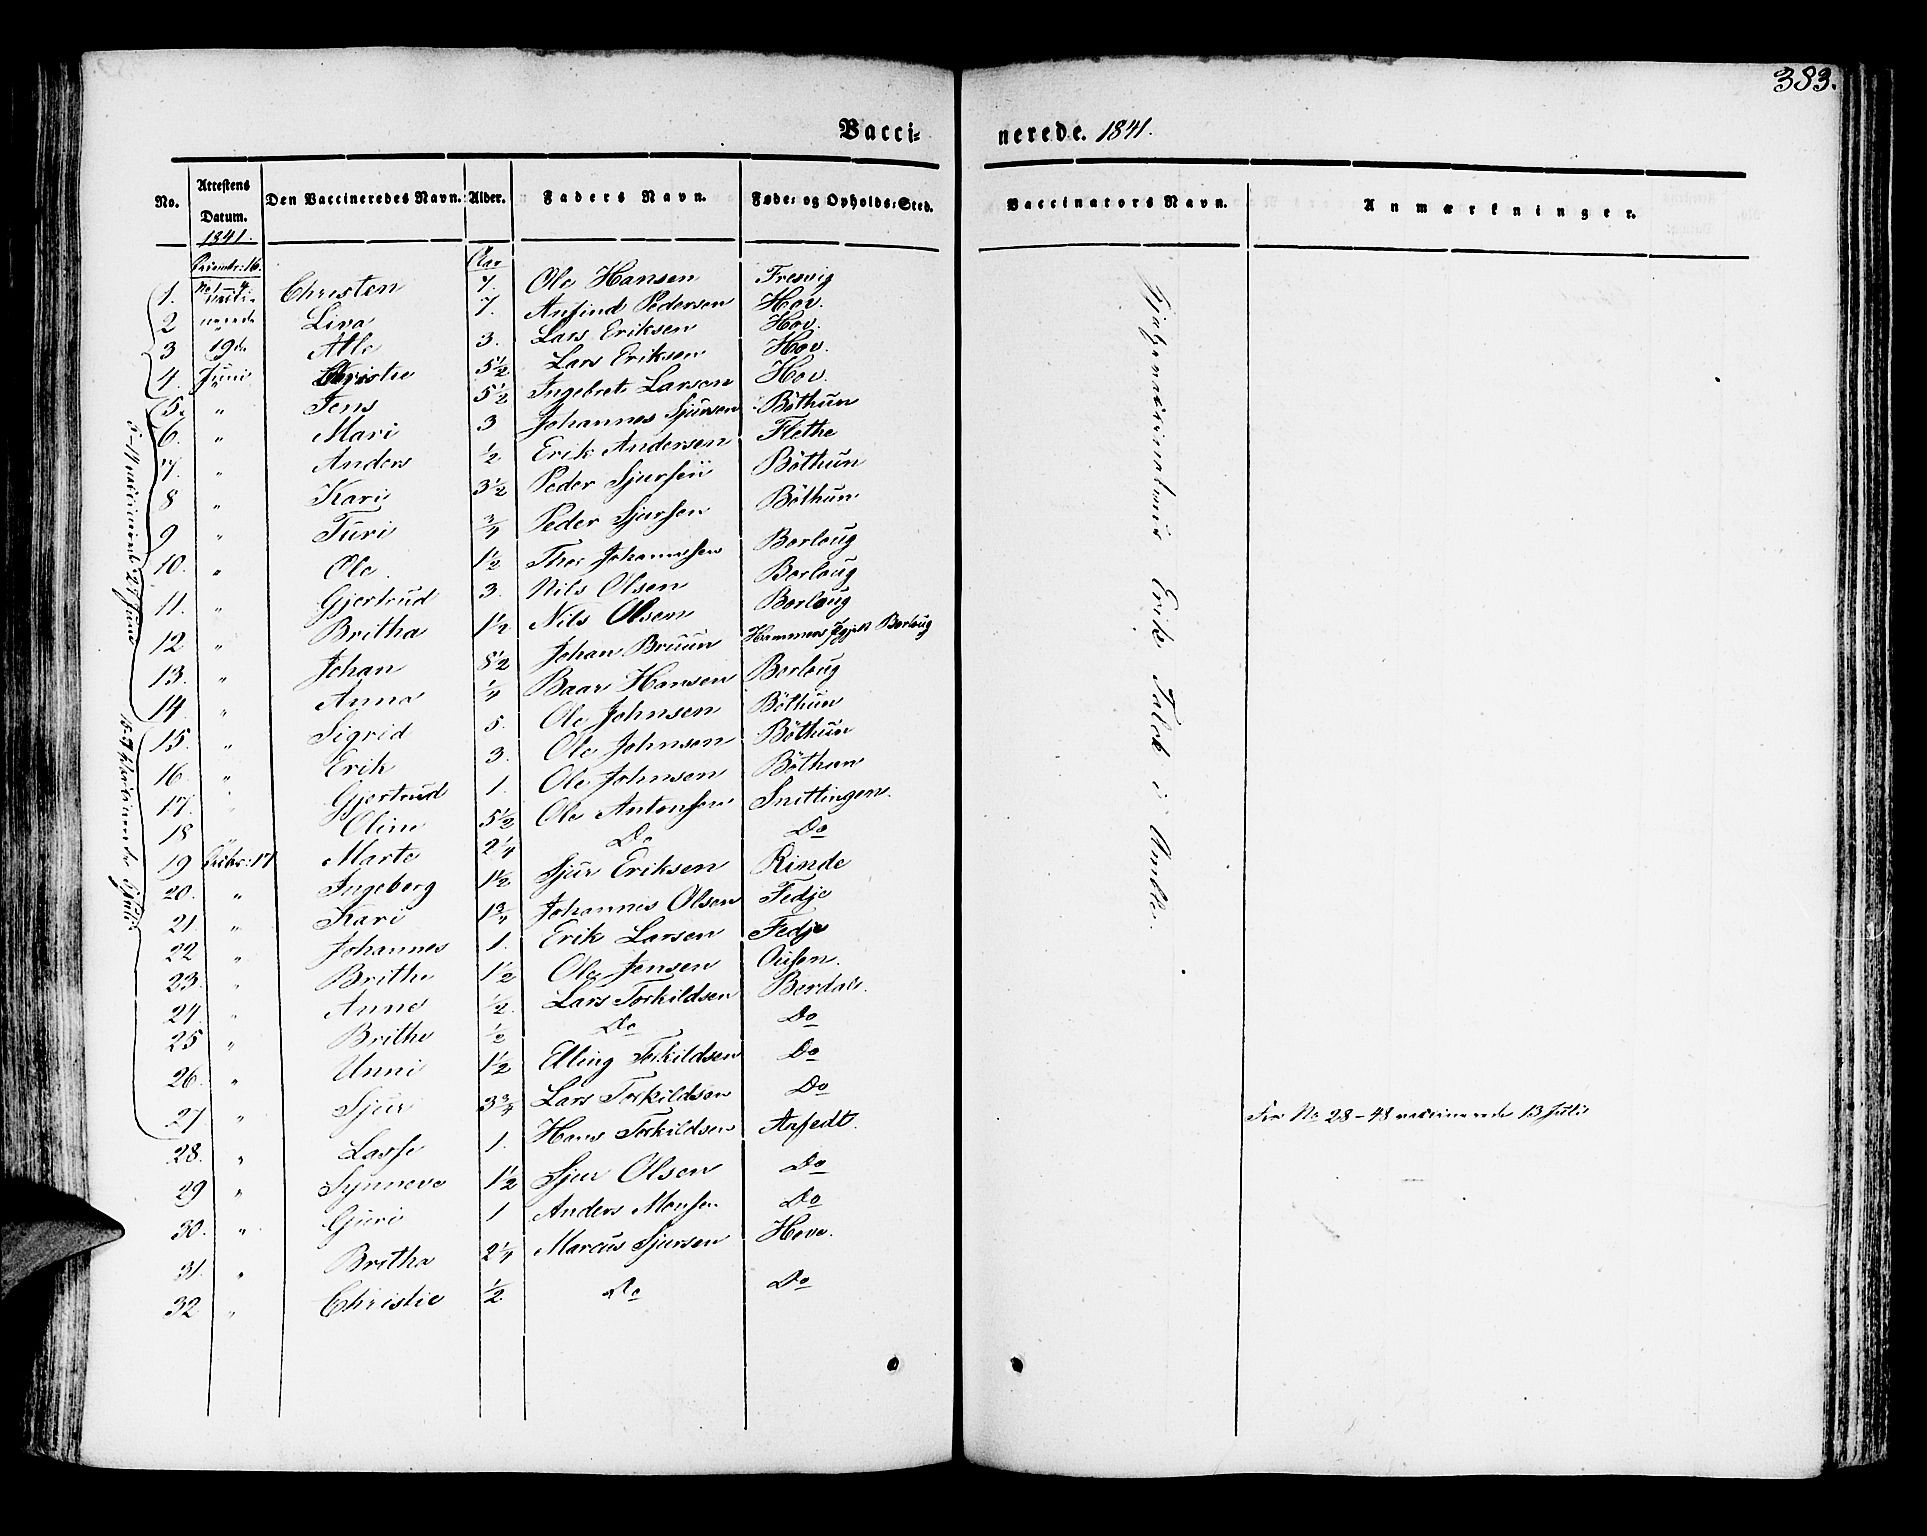 383.
Vacci- nerede. 1841.
No. Attestens Datum. Den Vaccineredes Navn. Alder. Faders Navn. Føde- og Opholds-Sted. Vaccinators Navn. Anmærkninger.
1841.
Decembr: 16. Aar
1. No 1-4 Christen 7. Ole Hansen Fresvig
2 Liva 7. Anfind Pedersen Hov.
3 19de Atle 3. Lars Eriksen Hov.
4. Juni Christie 5 1/2 Lars Eriksen Hov.
5. " Jens 5 1/2 Ingebret Larsen Hov.
6. " Mari 3 Johannes Sjursen Böthun
7. " Anders 1/2 Erik Andersen Flethe
8 " Kari 3 1/2 Peder Sjursen Böthun
9 " Turi 3/4 Peder Sjursen Böthun
10. " Ole 1 1/2 Thor Johannesen Borloug
11. " Gjertrud 3. Nils Olsen Borloug
12 " Britha 1 1/2 Nils Olsen Borloug
13. " Johan 8 1/2 Johan Bruun Hammers Borloug
14. " Anna 1/4 Baar Hansen Borloug
15. " Sigrid 5. Ole Johnsen Böthun
16 " Erik 3. Ole Johnsen Böthun
17. " Gjertrud 1. Ole Johnsen Böthun
18 " Oline 5 1/2 Ole Antonsen Snitlingen.
19 Decbr: 17 Marte 2 1/4 Do Do
20. " Ingeborg 1 1/2 Sjur Eriksen Rinde
21 " Kari 1 3/4 Johannes Olsen Fedje
22 " Johannes 1. Erik Larsen Fedje
23. " Brithe 1 1/2 Ole Jensen Ousen.
24 " Anne 1/2 Lars Torkildsen Berdal.
25 " Brithe 1/2 Do Do
26. " Unni 1 1/2 Elling Torkildsen Do
27 " Sjur 3 3/4 Lars Torkildsen Do
28. " Lasse 1. Hans Torkildsen Arfedt.
29 " Synneve 1 1/2 Sjur Olsen Do
30. " Guri 1 Anders Monsen Do
31. " Britha 2 1/4 Marcus Sjursen Hove.
32. " Christie 1/2 Do Do
5-14 vakcinerede 27 Juni
Hjelpevaccinateur Erik Talek i Umbt.
Fra No 28-48 vakcinerede 13 Juli